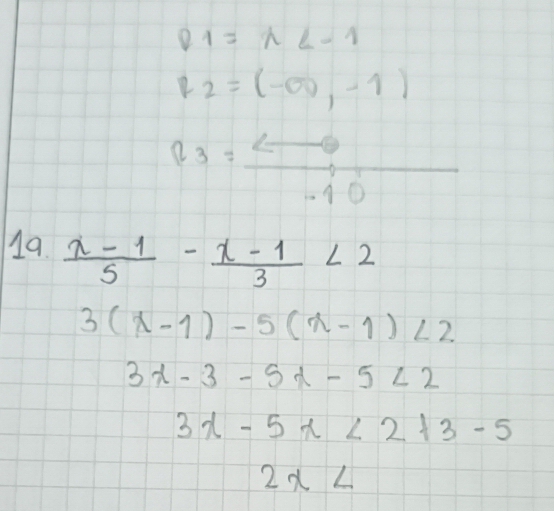 R1 = x < -1
R2 = (-∞, -1)
R3 =
-1 0
19. x - 1 / 5 - x - 1 / 3 < 2
3(x-1) - 5(x-1) < 2
3x - 3 - 5x - 5 < 2
3x - 5x < 2 + 3 - 5
2x <